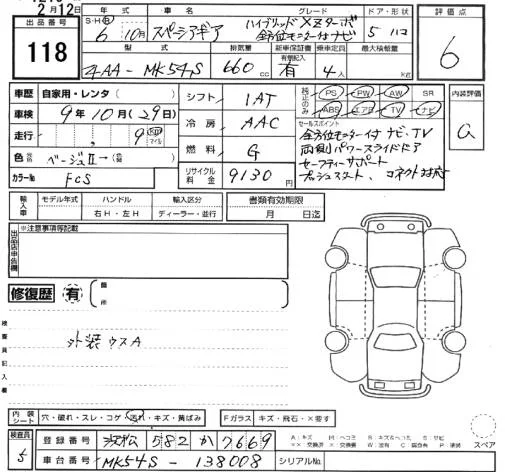 2月12日
出品番号 118
年式 S・H・R 6年10月
車名 スペーシアギア
グレード ハイブリッドXZターボ 全方位モニター付ナビ
ドア・形状 5 ハコ
評価点 6
型式 4AA-MK54S
排気量 660 CC
新車保証書 有 有・期付記入
乗車定員 4人
最大積載量 KG
車歴 自家用・レンタ( )
車検 9年10月(29日)
走行 , , 9 KM マイル
色 ベージュII→( )
カラーNo FCS
シフト IAT
冷房 AAC
燃料 G
リサイクル料金 9130円
純正のみ PS PW AW SR
ABS エアB TV ナビ
セールスポイント
全方位モニター付ナビ・TV
両側パワースライドドア
セーフティサポート
プッシュスタート、コネクト対応
内装評価 a
輸入車 モデル年式 ハンドル 右H・左H 輸入区分 ディーラー・並行
書類有効期限 月 日迄
出品店申告欄 ※注意事項等記載
修復歴 有 箇所
検査員記入欄
外装ウスA
内装シート 穴・破れ・スレ・コゲ・汚れ・キズ・黄ばみ
Fガラス キズ・飛石・×要す
スペア
検査員 5
登録番号 浜松 582 か 7669
A:キズ M:ヘコミ B:キズ&ヘコミ S:サビ
××:交換済 ×:交換要 W:波 C:腐食 P:塗装
車台番号 MK54S-138008
シリアルNo.